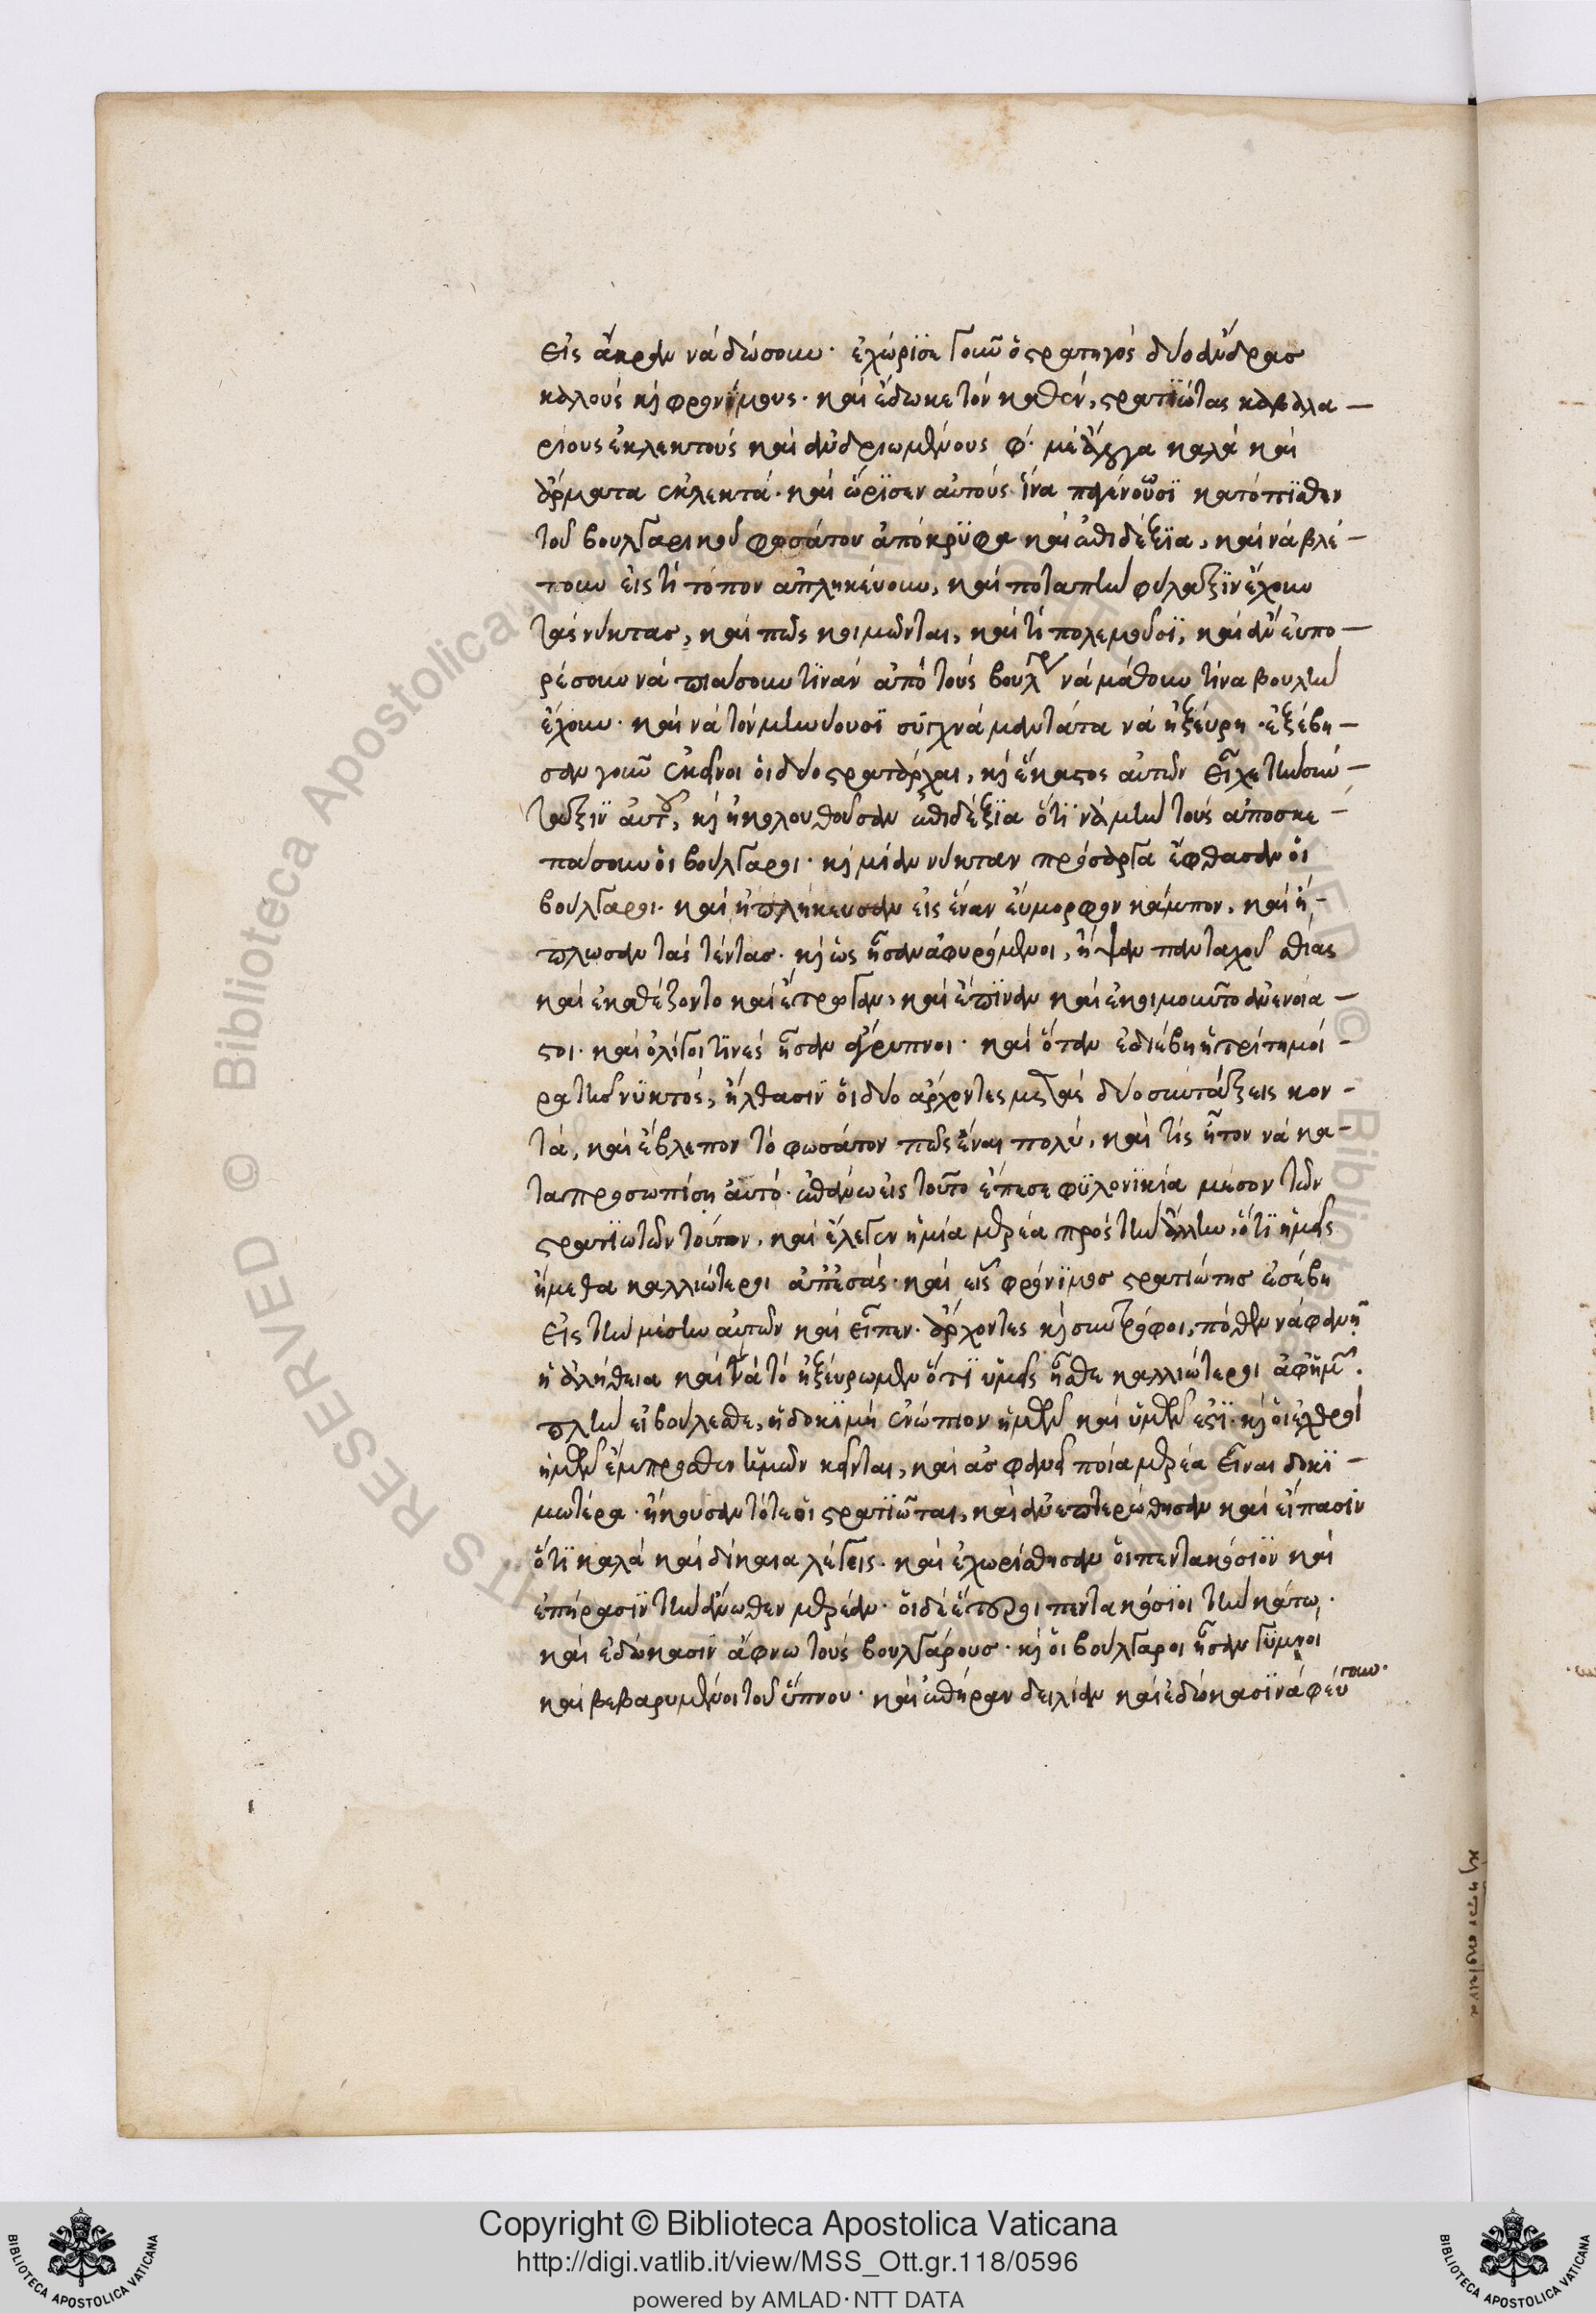 εἰς ἄκραν νά δώσουν· ἐχώρϊσε γοῦν ὁ στρατηγός δύο ἄνδρας
καλούς κὶ φρονΐμους· καὶ ἔδωκε τόν καθέν, στρατϊώτας καβαλα —
ρίους ἐκλεκτούς καὶ ἀνδριωμένους φ· μέ ἄλογα καλά καὶ
ἄρματα ἐκλεκτά· καὶ ὥρϊσεν αὐτούς ἵνα παγένουσϊ κατόπϊσθεν
τοῦ βουλγαρικοῦ φωσάτου ἀπόκρϋφα καὶ ἐπιδέξϊα, καὶ νά βλέ —
πουν εἰς τί τόπον ἀπληκεύουν, καὶ ποταπὴν φύλαξϊν ἔχουν
τάς νύκτας, καὶ πῶς κοιμῶνται, καὶ τί πολεμοῦσϊ, καὶ ἂν εὐπο —
ρέσουν νά πιάσουν τϊνάν ἀπό τούς βουλγάρ νά μάθουν τίνα βουλὴν
ἔχουν· καὶ νά τόν μηνύουσϊ σύχνά μαντάτα νά ἠξεύρη· ἐξέβη —
σαν γοῦν ἐκεῖνοι οἱ δύο στρατάρχαι, κὶ ἕκαστος αὐτῶν εἶχε τὴν σύν —
ταξϊν αὐτοῦ, κὶ ἠκολουθοῦσαν ἐπιδέξϊα ὅτϊ νά μὴν τούς ἀποσκε —
πάσουν οἱ βούλγαροι· κὶ μίαν νύκταν πρόσαργα ἔφθασαν οἱ
βούλγαροι· καὶ ἠπλήκευσαν εἰς ἕναν εὔμορφον κάμπον, καὶ ἥ —
πλωσαν τάς τέντας· κὶ ὡς ἦσαν ἀφυρόμενοι, ἧψαν πανταχοῦ ἱστίας
καὶ ἐκαθέζοντο καὶ ἔτρωγαν, καὶ ἔπϊναν καὶ ἐκοιμοῦντο ἀνενοία —
στοι· καὶ ὀλίγοι τϊνές ἦσαν ἄγρυπνοι· καὶ ὅταν ἐδιέβη ἡ τρίτη μοί —
ρα τῆς νϋκτός, ἦλθασϊν οἱ δύο ἄρχοντες μέ τάς δύο συντάξεις κον —
τά, καὶ ἔβλεπον τό φωσάτον πῶς ἔναι πολύ, καὶ τίς ἦτον νά κα —
ταπροσωπίση αὐτό· ἐπάνω εἰς τοῦτο ἔπεσε φϋλονϊκία μέσον τῶν
στρατϊωτῶν τούτων, καὶ ἔλεγεν ἡ μία μερέα πρός τὴν ἄλλην, ὅτϊ ἡμεῖς
ἤμεθα καλλιώτεροι ἀπ' ἐσάς· καὶ εἷς φρόνϊμος στρατιώτης ἐσέβη
εἰς τὴν μέσην αὐτῶν καὶ εἶπεν· ἄρχοντες κὶ σύντροφοι, πόθεν νά φανῆ
ἡ ἀλήθεια καὶ νά τό ἠξεύρωμεν ὅτϊ ὑμεῖς ἦσθε καλλιώτεροι ἀφ' ἡμῶν·
πλὴν εἰ βούλεσθε, ἡ δοκϊμή ἐνώπιον ἡμῶν καὶ ὑμῶν ἐστϊ· κὶ οἱ ἐχθροί
ἡμῶν ἔμπροσθεν ὑμῶν κεῖνται, καὶ ἄς φανεῖ ποία μερέα εἶναι δοκϊ —
μωτέρα· ἤκουσαν τότε οἱ στρατϊῶται, καὶ ἀνεπτερώθησαν καὶ εἴπασϊν
ὅτϊ καλά καὶ δίκαια λέγεις· καὶ ἐχωρίσθησαν οἱ πεντακόσϊοι καὶ
ἐπήρασϊν τὴν ἄνωθεν μερέαν· οἱ δέ ἕτεροι πεντακόσϊοι τὴν κάτω·
καὶ ἐδώκασϊν ἄφνω τούς βουλγάρους· κὶ οἱ βούλγαροι ἦσαν γϋμνοι
καὶ βεβαρυμένοι τοῦ ὕπνου· καὶ ἐπήραν δειλίαν καὶ ἐδώκασϊ νά φεύγουν·